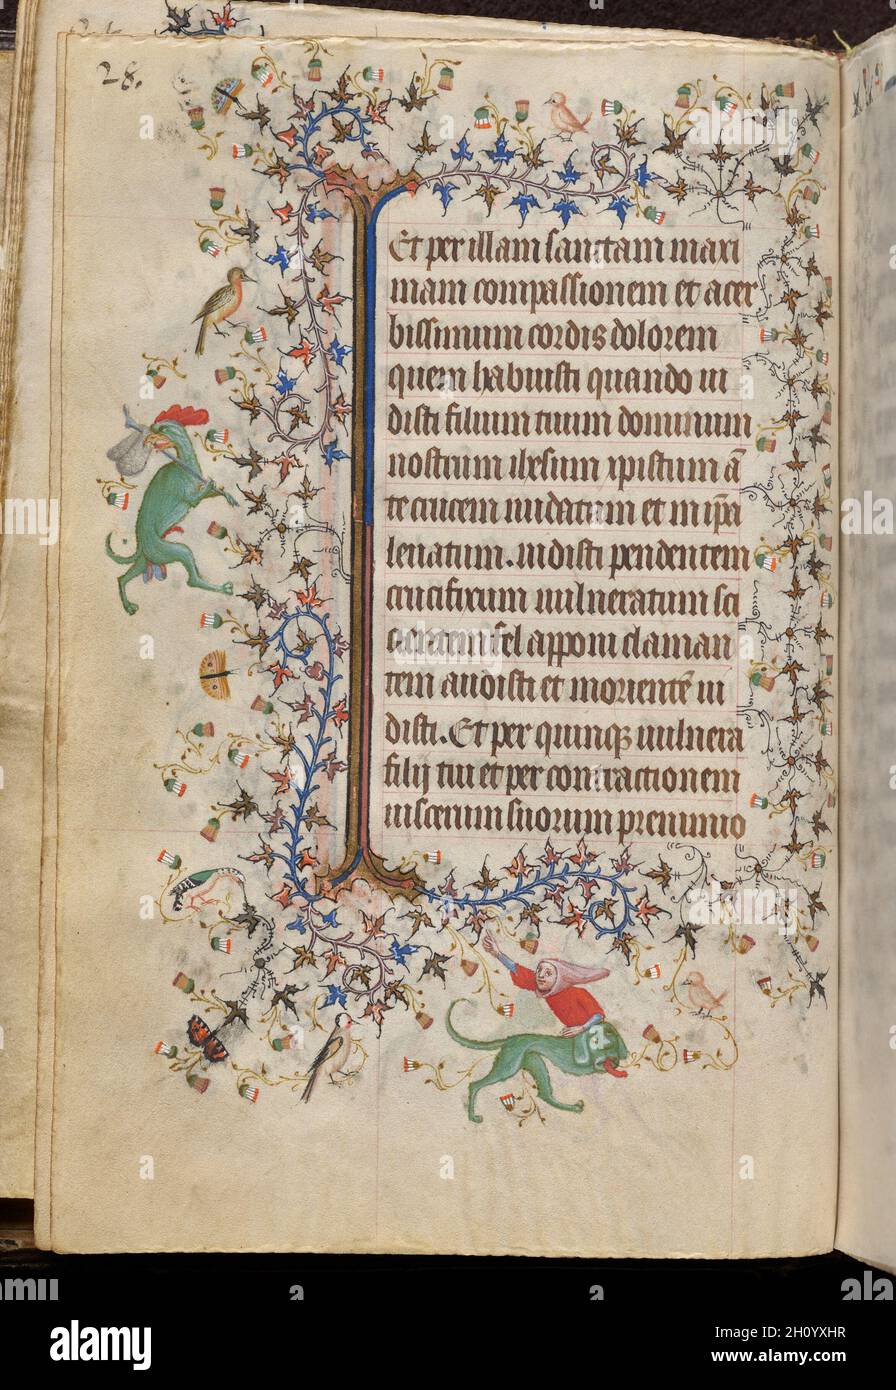 28.
Et per illam sanctam maxi
mam compassionem et acer
bissimum cordis dolorem
quem habuisti quando vi
disti filium tuum dominum
nostrum ihesum xpistum ā
te crucem nudatum et in ip̄a
leuatum. vidisti pendentem
crucifixum vulneratum sci
cientem fel apponi claman
tem audisti et morientē vi
disti. Et per quinqꝫ vulnera
filij tui et per contractionem
viscerum suorum pre nimio
alamy
Image ID: 2H0YXHR
www.alamy.com